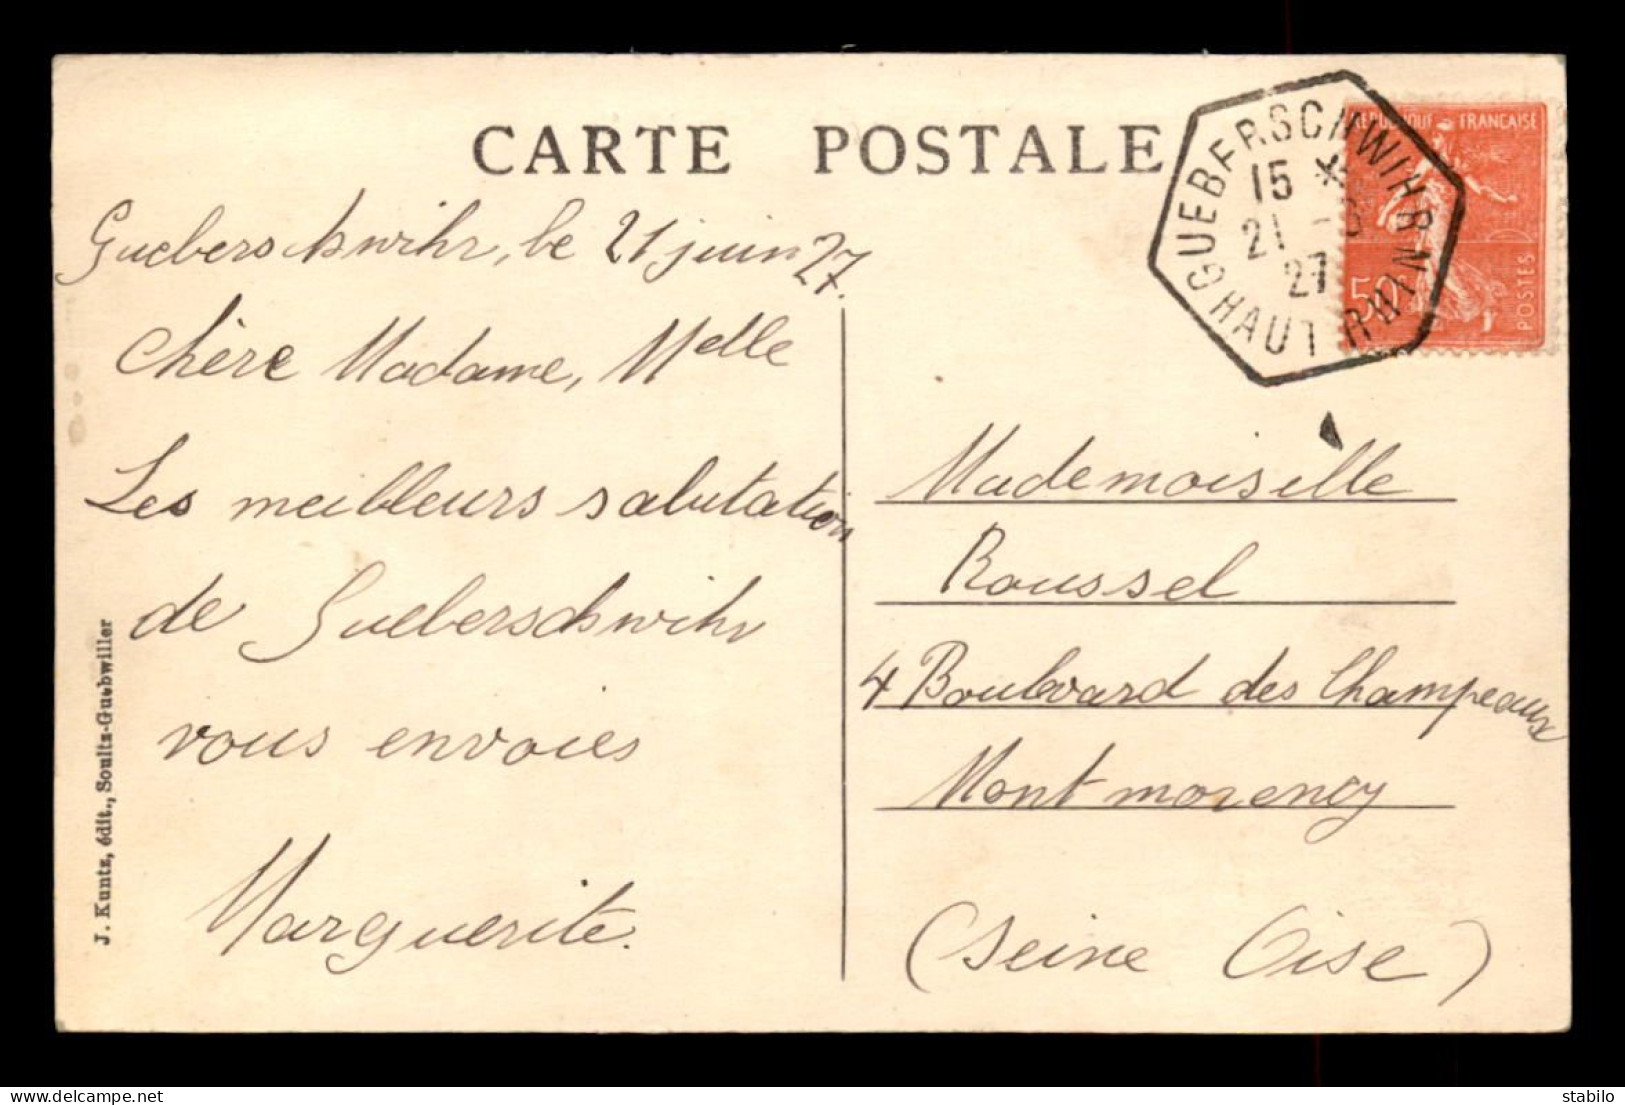 CARTE POSTALE
Gueberschwihr, le 21 juin 27.
Chère Madame, Melle
Les meilleurs salutation
de Gueberschwihr
vous envoies
Marguerite.
J. Kuntz, édit., Soultz-Guebwiller
GUEBERSCHWIHR
15 *
21 -6
27
HAUT RHIN
REPUBLIQUE FRANCAISE
50c
POSTES
Mademoiselle
Roussel
4 Boulevard des Champeaux
Montmorency
(Seine Oise)
delcampe.net
stabilo